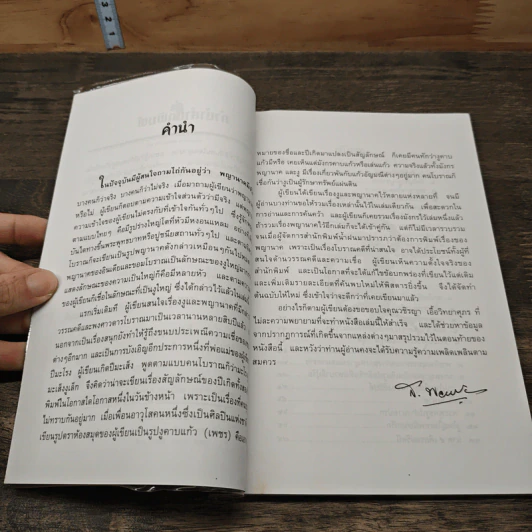 คำนำ
ในปัจจุบันมีผู้สนใจถามไถ่กันอยู่ว่า พญานาคมี
บางคนก็ว่าจริง บางคนก็ว่าไม่จริง เมื่อมาถามผู้เขียนว่าพญานาค
หรือไม่ ผู้เขียนก็ตอบตามความเข้าใจส่วนตัวว่ามีจริง แต่
ความเข้าใจของผู้เขียนไม่ตรงกับที่เข้าใจกันทั่วๆ ไป ซึ่งรู้จัก
ตามแบบไทยๆ คือมีรูปร่างใหญ่โตที่หัวมีหงอนแหลม อย่าง
บันไดทางขึ้นพระพุทธบาทหรือปูชนียสถานทั่วๆ ไป และ
โบราณก็จะเขียนเป็นรูปพญานาคดังกล่าวเหมือนๆ กันไป
พญานาคของอินเดียและขอมโบราณเป็นลักษณะของงูใหญ่มา
แสดงลักษณะของความเป็นใหญ่ก็คือมีหลายหัว และ
ของผู้เขียนก็เชื่อในลักษณะที่เป็นงูใหญ่ ซึ่งได้กล่าวไว้แล้วใน
แรกเริ่มเดิมที ผู้เขียนสนใจเรื่องงูและพญานาคที่มีกล่า
วรรณคดีและพงศาวดารโบราณมาเป็นเวลานานหลายสิบปีแล้ว
นอกจากเป็นเรื่องสนุกยังทำให้รู้ถึงขนบประเพณีความเชื่อของ
ต่างๆ อีกมาก และเป็นการบังเอิญอีกประการหนึ่งที่พ่อแม่ของผู้
ปีมะโรง ผู้เขียนเกิดปีมะเส็ง พูดตามแบบคนโบราณก็ว่ามะโร
มะเส็งงูเล็ก จึงคิดว่าน่าจะเขียนเรื่องสัญลักษณ์ของปีเกิดทั้งสอ
พิมพ์ในโอกาสใดโอกาสหนึ่งในวันข้างหน้า เพราะเป็นเรื่องที่คน
ไม่ทราบกันอยู่มาก เมื่อเพื่อนอาวุโสคนหนึ่งซึ่งเป็นศิลปินแห่งชา
เขียนรูปตราห้องสมุดของผู้เขียนเป็นรูปงูคาบแก้ว (เพชร) คือ
หมายของชื่อและปีเกิดมาแปลงเป็นสัญลักษณ์ ก็เคยมีคนทักว่างูคาบ
แก้วมีหรือ เคยเห็นแต่มังกรคาบแก้วหรือเล่นแก้ว ความจริงแล้วทั้งมังกร
พญานาค และงู มีเรื่องเกี่ยวพันกับแก้วอัญมณีต่างๆ อยู่มาก คนโบราณก็
เชื่อกันว่างูเป็นผู้รักษาทรัพย์แผ่นดิน
ผู้เขียนได้เขียนเรื่องงูและพญานาคไว้หลายแห่งหลายที่ จนมี
ผู้อ่านบางท่านขอให้รวมเรื่องเหล่านั้นไว้ในเล่มเดียวกัน เพื่อสะดวกใน
การอ่านและการค้นคว้า และผู้เขียนก็เคยรวมเรื่องมังกรไว้เล่มหนึ่งแล้ว
ถ้ารวมเรื่องพญานาคไว้อีกเล่มก็จะได้เข้าคู่กัน แต่ก็ไม่มีเวลารวบรวม
จนเมื่อผู้จัดการสำนักพิมพ์น้ำฝนมาปรารภว่าต้องการพิมพ์เรื่องของ
พญานาค เพราะเป็นเรื่องโบราณคดีที่น่าสนใจ อาจได้ประโยชน์ทั้งผู้ที่
สนใจด้านวรรณคดีและความเชื่อ ผู้เขียนเห็นความตั้งใจจริงของ
สำนักพิมพ์ และเป็นโอกาสที่จะได้แก้ไขข้อบกพร่องที่เขียนไว้แต่เดิม
และเพิ่มเติมรายละเอียดที่ค้นพบใหม่ให้พิสดารยิ่งขึ้น จึงได้จัดทำ
ต้นฉบับให้ใหม่ ซึ่งเข้าใจว่าจะดีกว่าที่เคยเขียนมาแล้ว
อย่างไรก็ตามผู้เขียนต้องขอขอบใจคุณวชิญา เอื้อวิทยาศุภร ที่
ไม่ละความพยายามที่จะทำหนังสือเล่มนี้ให้สำเร็จ และได้ช่วยหาข้อมูล
จากปรากฏการณ์ที่เกิดขึ้นจากแหล่งต่างๆ มาสรุปรวมไว้ในตอนท้ายของ
หนังสือนี้ และหวังว่าท่านผู้อ่านคงจะได้รับความรู้ความเพลิดเพลินตาม
สมควร
3
2
1